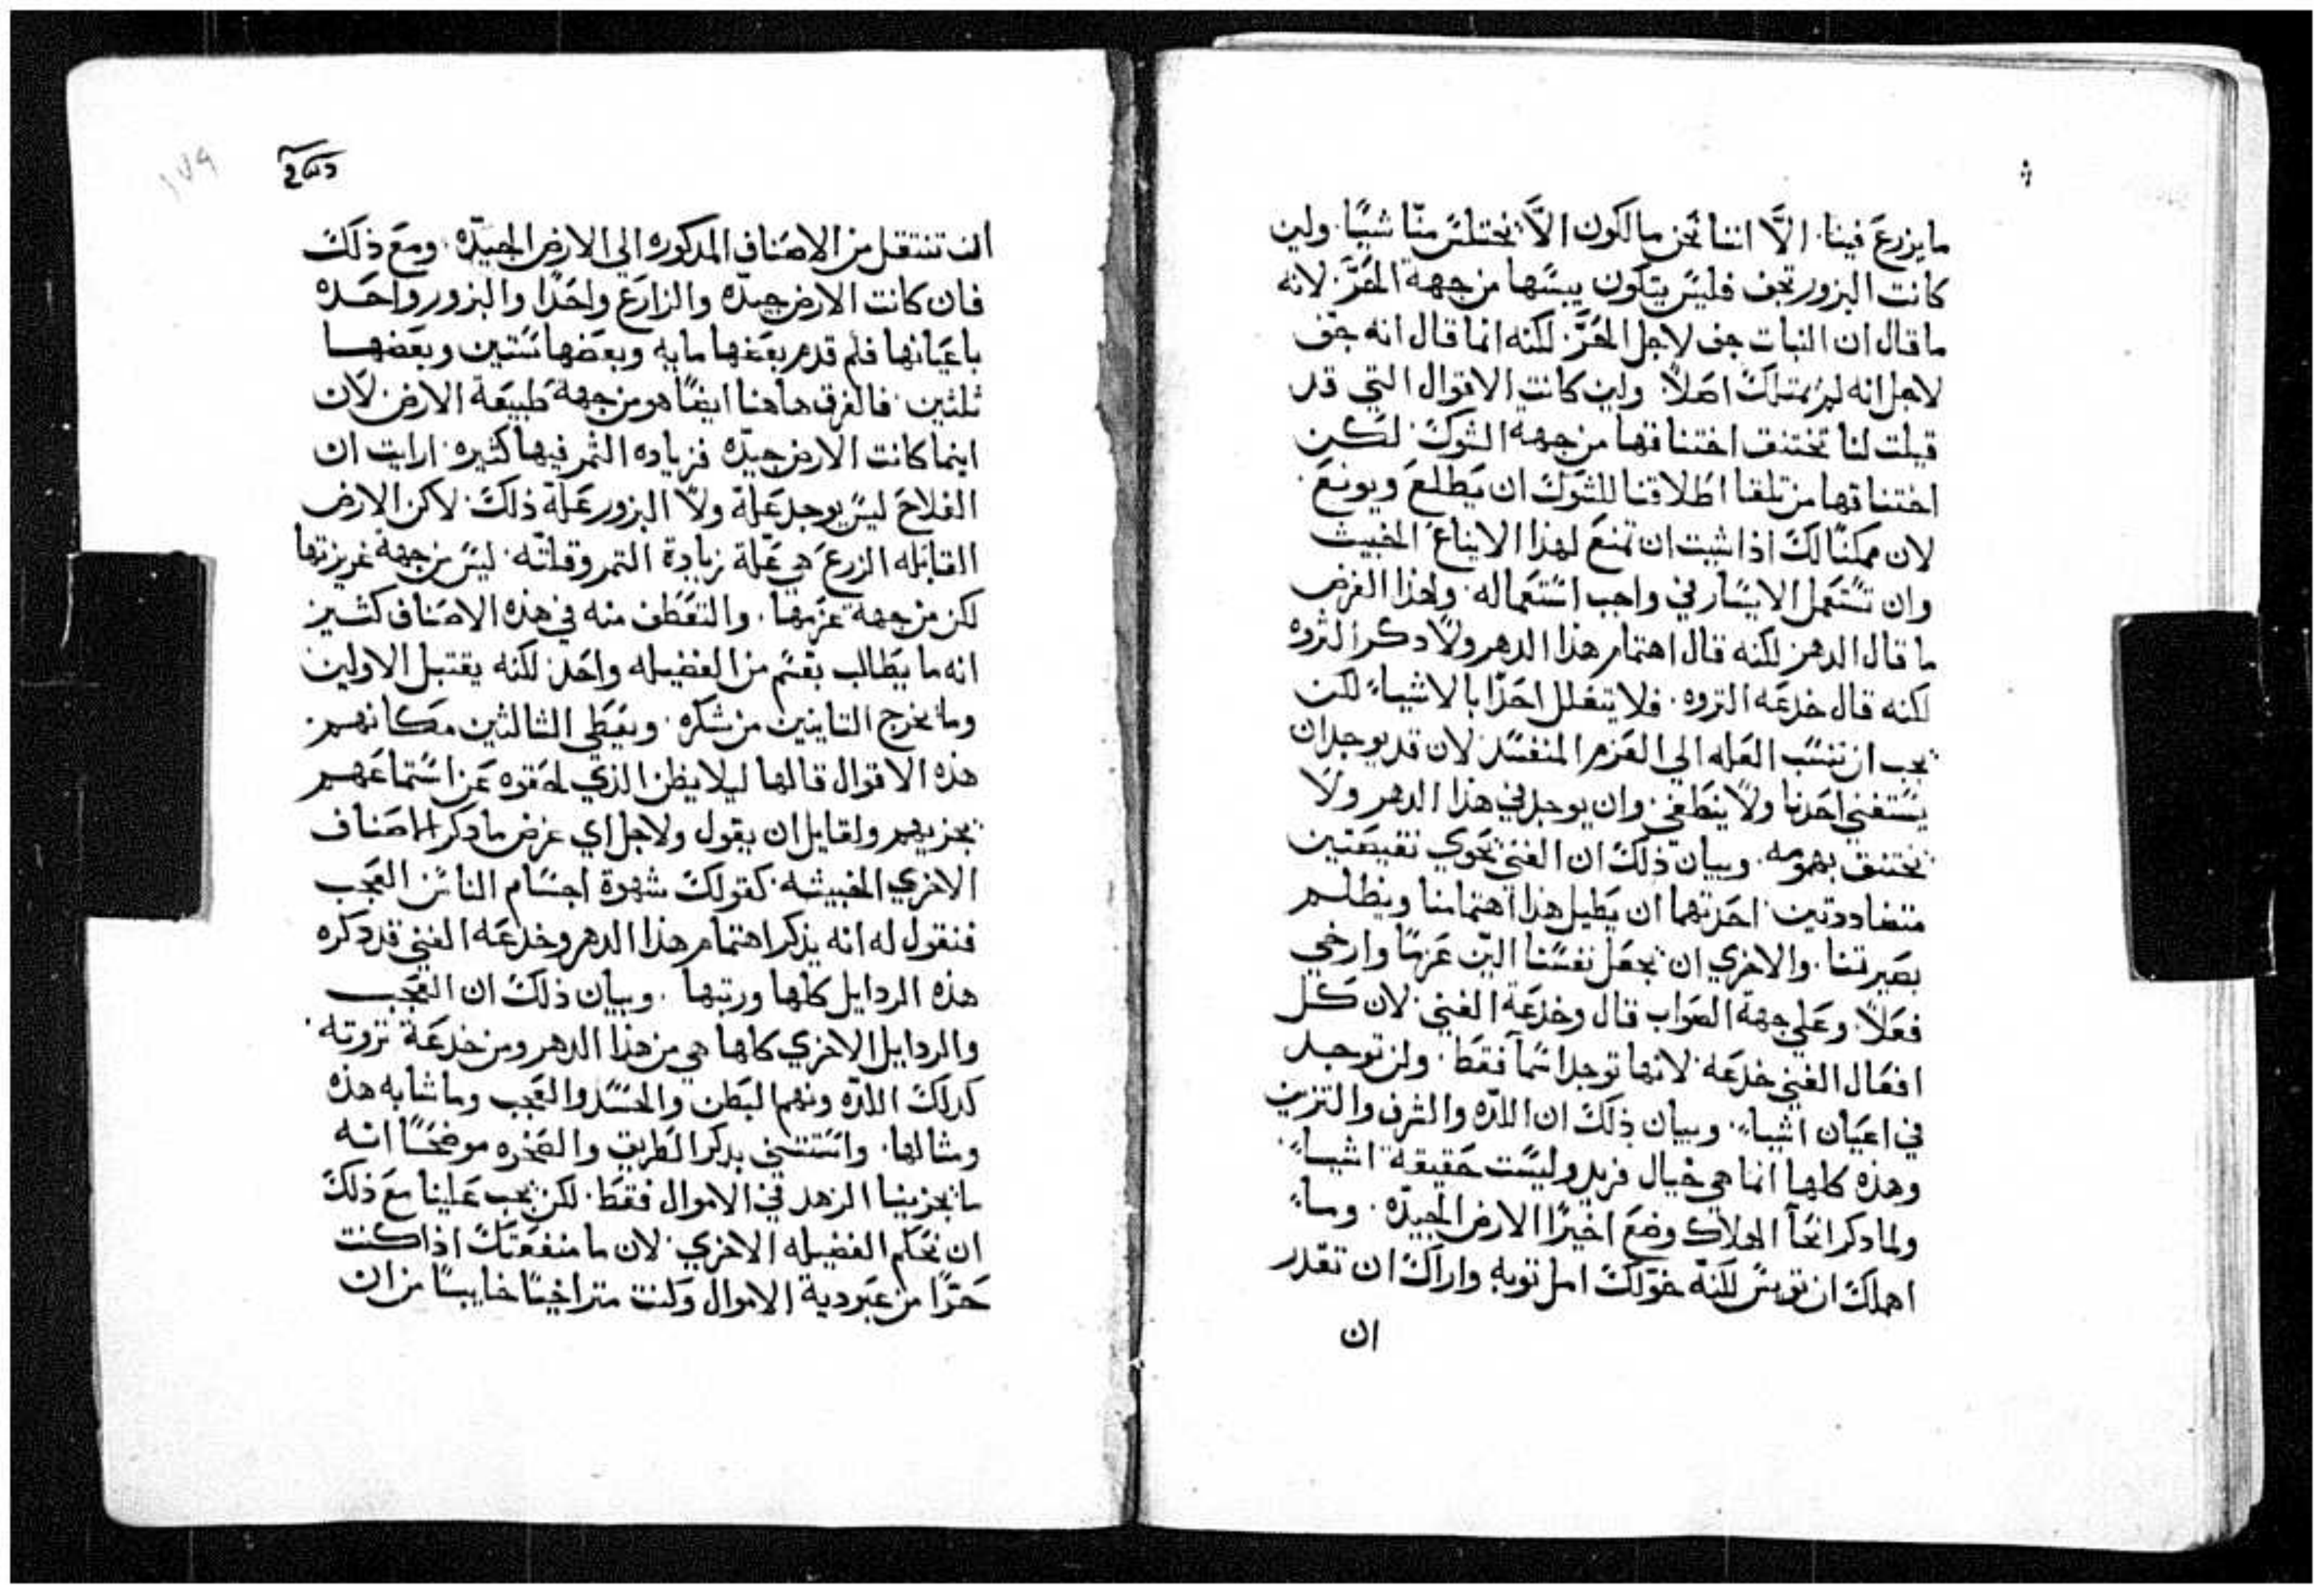 ما يزرع فينا. الَّا اننا نحن مالكون الَّا نختلس منّا شيًا. ولين
كانت البزور تجف فليس يتكون يبسها من جهة الحَرّ. لانه
ما قال ان النبات جف لاجل الحَرّ. لكنه انما قال انه جف
لاجل انه لم يمتلك اصلاً. ولين كانت الاقوال التي قد
قيلت لنا تختنف اختناقها من جهة الشوك. لكن
اختناقها من تلقا اطلاقنا للشوك ان يطلع ويونع.
لان ممكنًا لك اذا شيت ان تمنع لهذا الايناع الخبيث
وان تستعمل الايسار في واجب استعماله. ولهذا الغرض
ما قال الدهر لكنه قال اهتمام هذا الدهر ولا دكر الثروه
لكنه قال خدعَه التروه. فلا يتعلل احدًا بالاشيا لكن
يجب ان ننسب العله الي العزم المنفسد لان قد يوجد ان
يستغني احدنا ولا ينطغي. وان يوجد في هذا الدهر ولا
يختنف بهمومه. وبيان ذلك ان الغني يحوي نقيصَتين
متضاددتين احدتهما ان يطيل هذا اهتمامنا ويظلم
بصيرتنا. والاخري ان يجعل نفسنا الين عزمًا وارخي
فعلاً. وعلي جهة الصواب قال وخدعة الغني. لان كل
افعال الغني خدعَه. لانها توجد اسمآ فقط. ولن توجد
في اعيان اشيا. وبيان ذلك ان اللده والشرف والتزين
وهذه كلها انما هي خيال فريد وليست حقيقة اشيا.
ولما دكر انحآ الهلاك وضع اخيرًا الارض الجيدّه. وما
اهملك ان تويس لكنه خولك امل توبه واراك ان تقدر
ان
١٧٩
ان تنتقل من الاصناف المدكوره الي الارض الجيدّه. ومع ذلك
فان كانت الارض جيدّه والزارع واحدًا والبزور واحده
باعيانها فلم قدم بعضها مايه وبعضها ستين وبعضها
ثلثين. فالفرق هاهنا ايضًا هو من جهة طبيعة الارض. لان
اينما كانت الارض جيدّه فزياده الثمر فيها كثيره. ارايت ان
الفلاح ليس يوجد علة ولا البزور علة ذلك. لاكن الارض
القابله الزرع هي علة زيادة التمر وقلته. ليس من جهة غريزتها
لكن من جهة عزمها. والتعطف منه في هذه الاصناف كثير
انه ما يطالب بقسم من الفضيله واحد لكنه يقتبل الاولين
وما يخرج التانيين من شكره. ويعطي الثالثين مكانهم.
هذه الاقوال قالها ليلا يظن الذي لحقوه عن استماعهم
يجزيهم ولقايل ان يقول ولاجل اي غرض ما دكر الاصناف
الاخري الخبيثه. كقولك شهوة اجسام الناس العجب
فنقول له انه يذكر اهتمام هذا الدهر وخدعه الغني قد دكره
هذه الردايل كلها ورتبها. وبيان ذلك ان العجب
والردايل الاخري كلها هي من هذا الدهر ومن خدعة تروته.
كدلك اللدّه ونهم البطن والحسد والعجب وما شابه هذه
ومثالها. واستتني بدكر الطريق والصخره موضحًا انه
ما يجزينا الزهد في الاموال فقط. لكن يجب علينا مع ذلك
ان نحكم الفضيله الاخري. لان ما منفعتك اذا كنت
حرًّا من عبودية الاموال وكنت متراخيًا خايبًا من ان